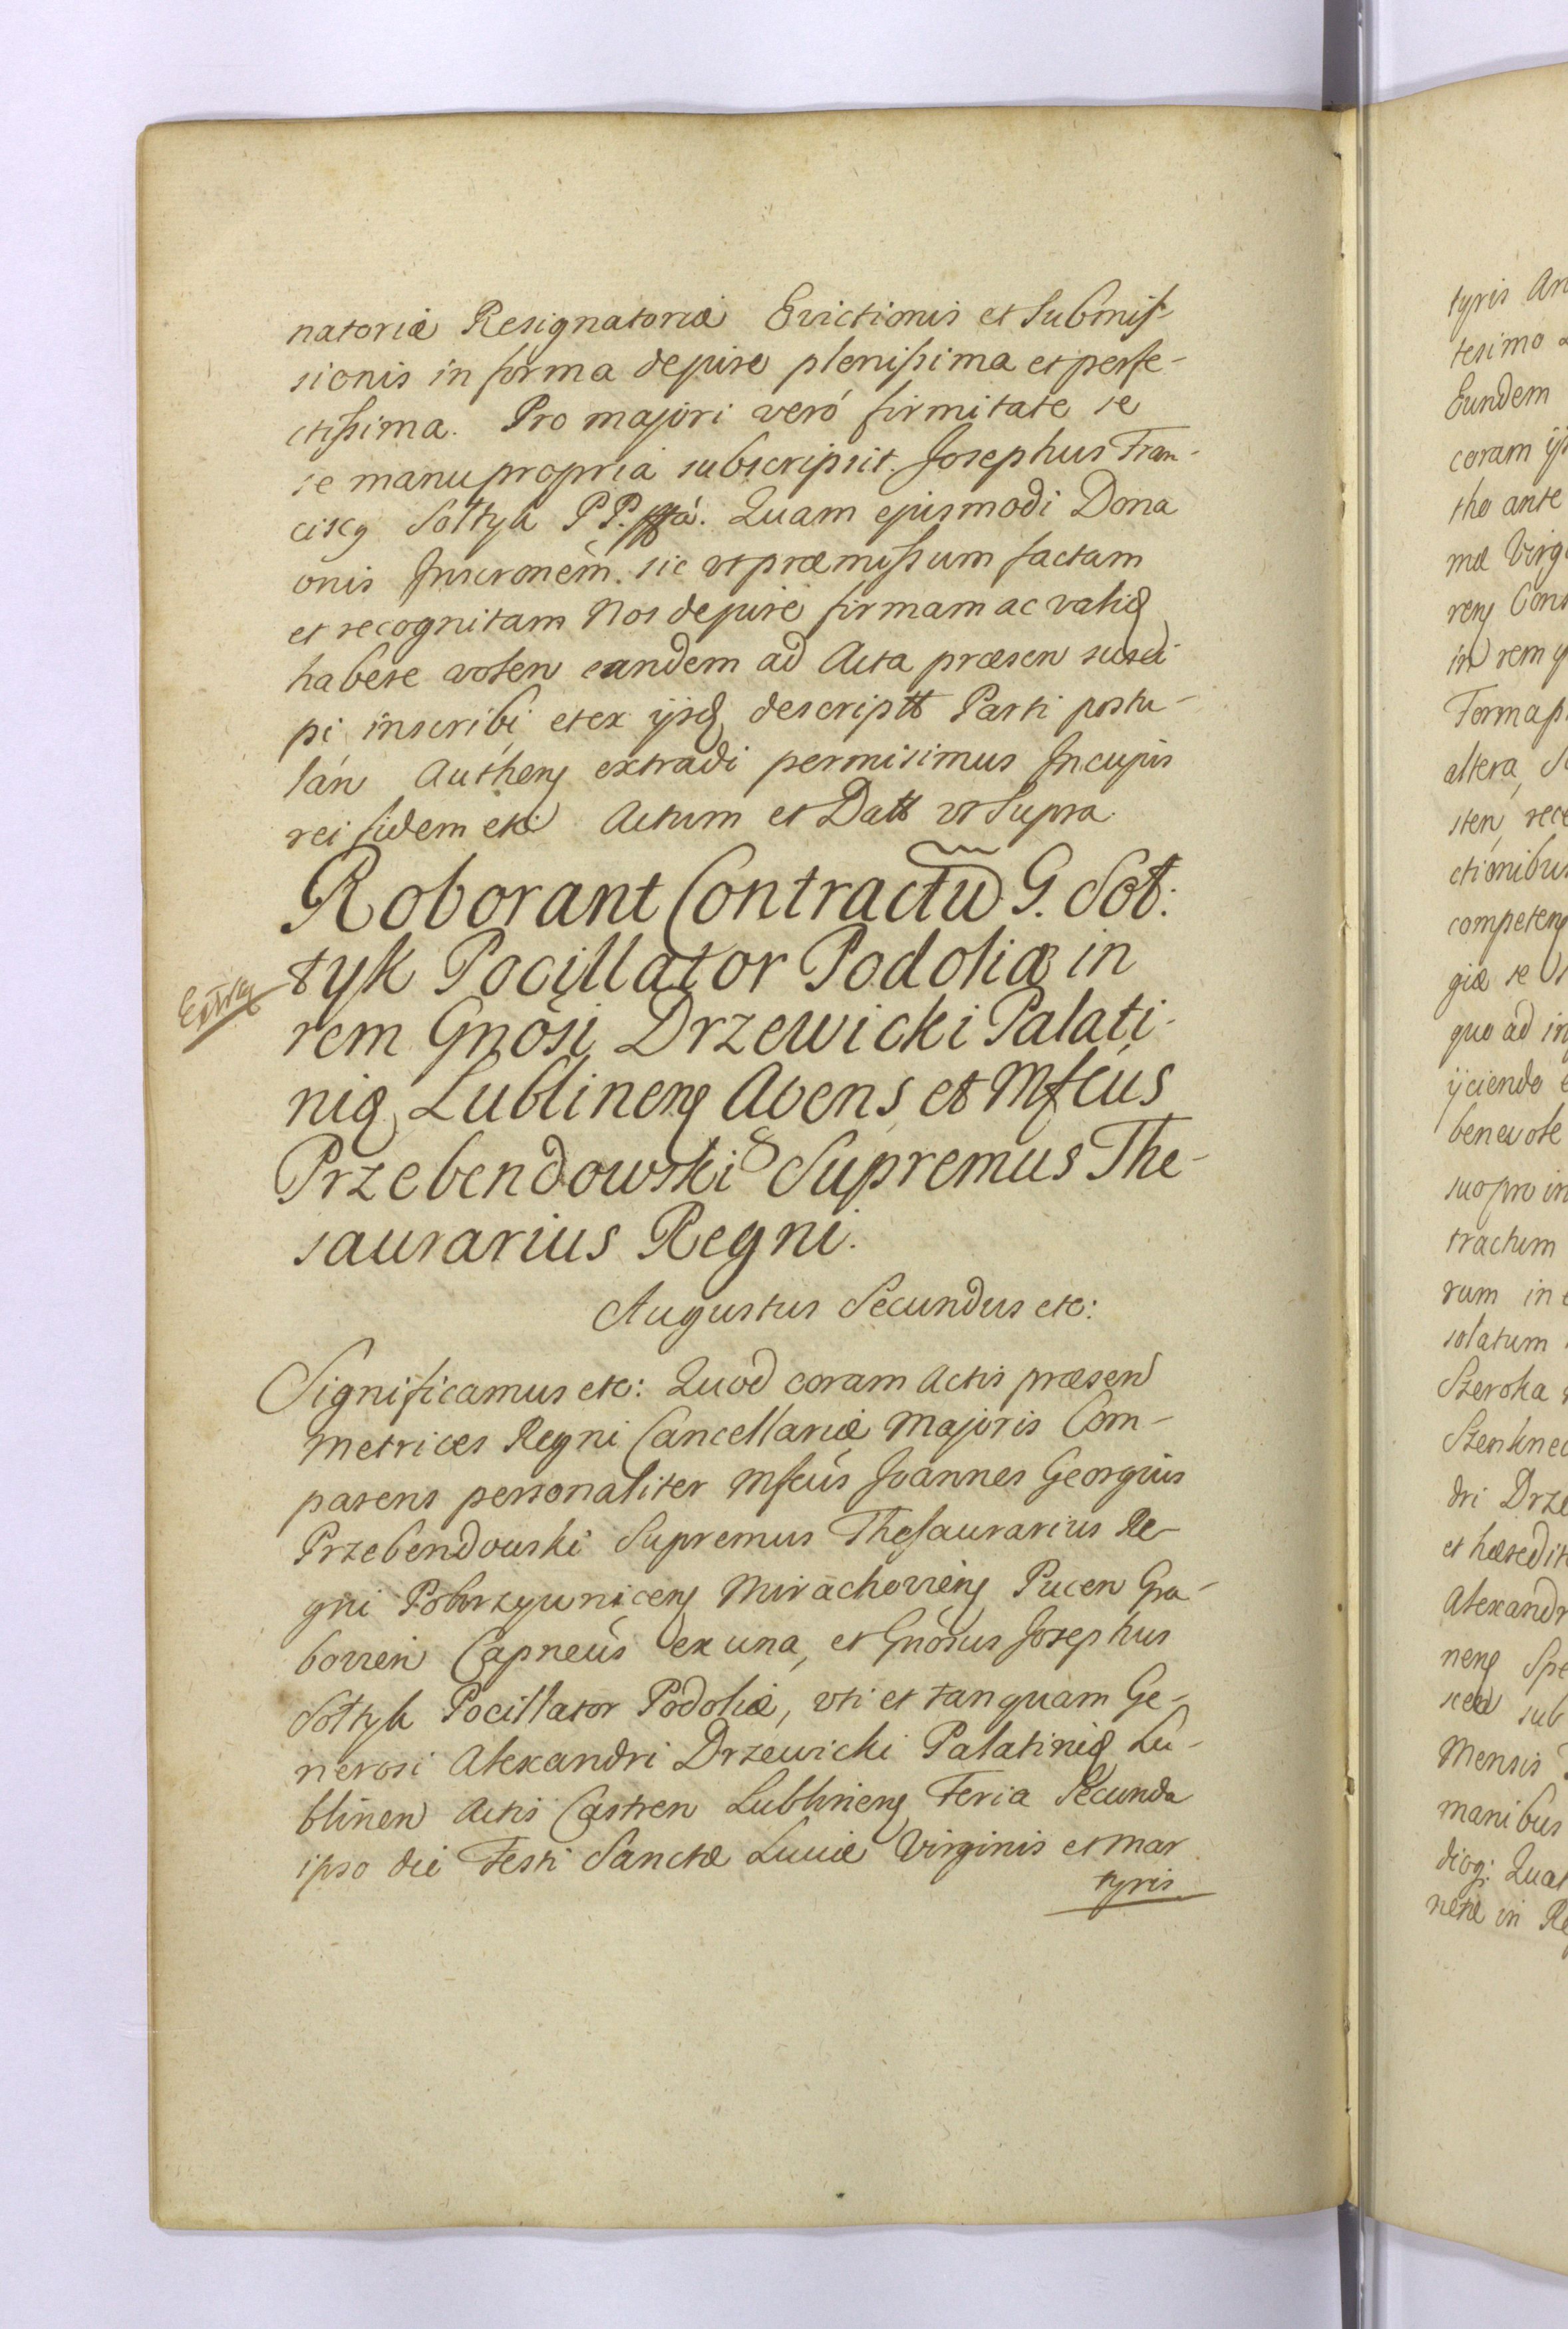 natoriæ Resignatoriæ Evictionis et Submiſ-
sionis in forma dejure plenißima et perfe-
ctißima. Pro majori veró firmitate se
se manu propria subscripsit. Josephus Fran-
cisc9 Sołtyk P P. Quam ejusmodi Dona
onis Inscronem̃. sic vt præmißum factam
et recognitam Nos dejure firmam ac validq
habere volen eandem ad Acta præsen susci
pi inscribi, et ex ijsdq descriptt Parti postu-
lán Autheng extradi permisimus In cujus
rei fidem etc: Actum et Datt vt Supra.
Roborant Contractũ G. Soł:
tyk Pocillator Podoliæ in
rem Gnõsi Drzewicki Palati-
nidq Lublineng Avens, et Mfcús
Przebendowski Supremus The-
saurarius Regni.
Augustus Secundus etc:
Significamus etc: Quod coram Actis præsen
Metrices Regni Cancellariæ Majoris Com-
parens personaliter Mfcús Joannes Georgius
Przebendouski Supremus Thesaurarius Re-
gni Mirachovieng Pucen Gra-
bovien Capneús ex una, et Gnósus Josephus
Sołtyk Pocillator Podoliæ, vti et tanquam Ge-
nerosi Alexandri Drzewicki Palatinidq Lu-
blinen Actis Castren Lublineng Feria Secunda
ipso die Festi Sanctæ Luciæ Virginis et Mar
tyris
tyris An
tesimo
Eundem
coram
tho ante
mæ Virg
reng Cons
in rem
Forma p
altera,
sten, rece
ctionibus
competeng
giæ se
quo ad in
ijciendo
benevole
suo pro in
tractum
rum in
solatum
Szeroka
Szenknec
dri Drze
et hæredit
Alexandr
neng Spe
sub
Mensis
manibus
Quæ
netæ in Re